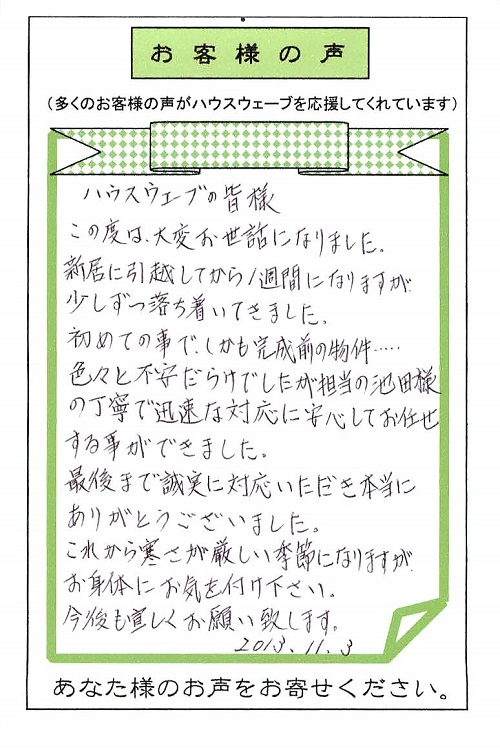 お客様の声
（多くのお客様の声がハウスウェーブを応援してくれています）
ハウスウェーブの皆様
この度は、大変お世話になりました。
新居に引越してから1週間になりますが
少しずつ落ち着いてきました。
初めての事で、しかも完成前の物件……
色々と不安だらけでしたが担当の池田様
の丁寧で迅速な対応に安心してお任せ
する事ができました。
最後まで誠実に対応いただき本当に
ありがとうございました。
これから寒さが厳しい季節になりますが
お身体にお気を付け下さい。
今後も宜しくお願い致します。
2013.11.3
あなた様のお声をお寄せください。